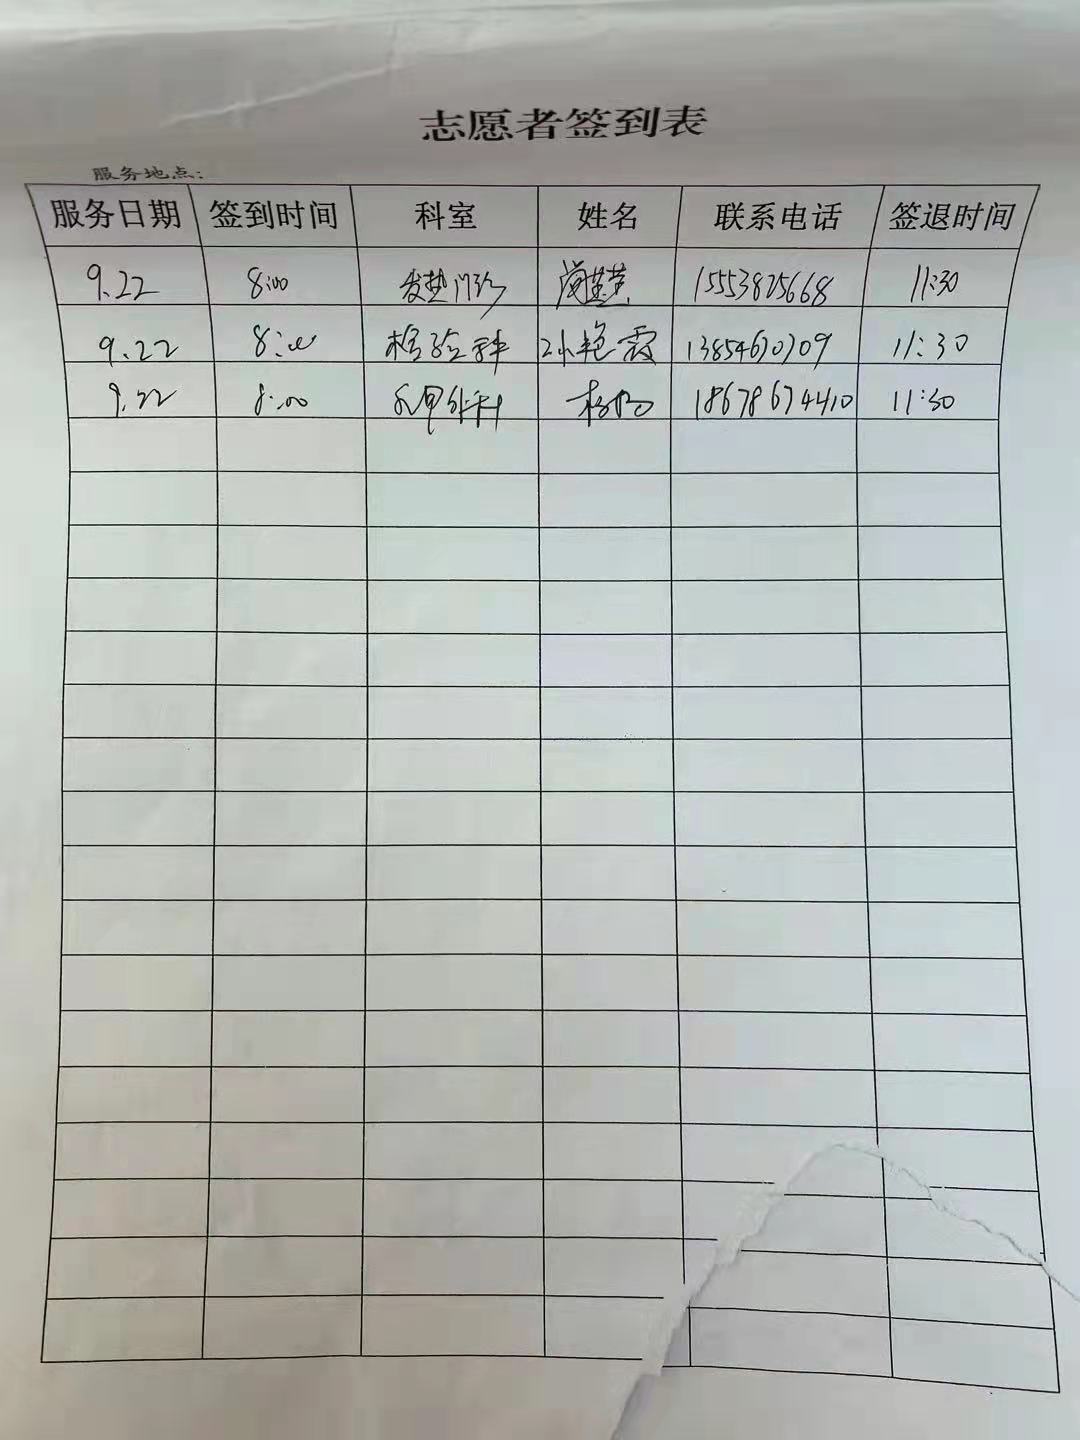 志愿者签到表
服务地点：
服务日期 签到时间 科室 姓名 联系电话 签退时间
9.22 8:00 发热门诊 15553825668 11:30
9.22 8:00 检验科 艳霞 11:30
9.22 8:00 乳甲外科 杨 18678674410 11:30